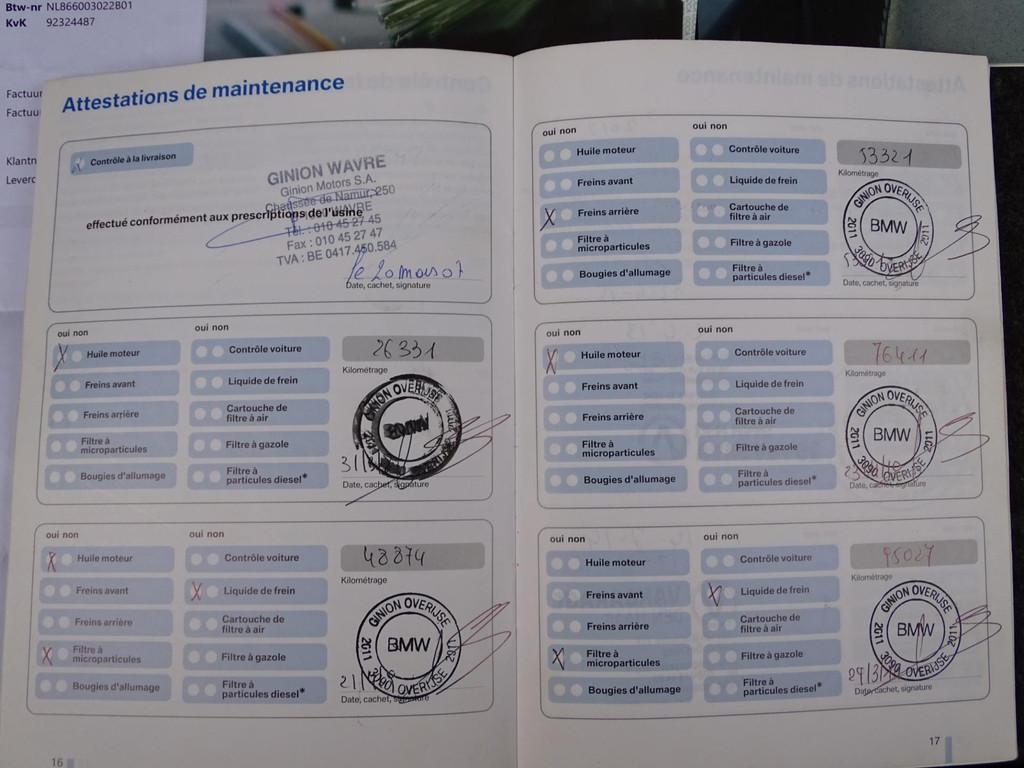 Btw-nr NL866003022B01
KvK 92324487
Factuu
Factuu
Klantn
Leverc
Attestations de maintenance
Contrôle à la livraison
effectué conformément aux prescriptions de l'usine
GINION WAVRE
Ginion Motors S.A.
Chaussée de Namur, 250
WAVRE
Tél. : 010 45 27 45
Fax : 010 45 27 47
TVA : BE 0417.450.584
le 20 mars 07
Date, cachet, signature
oui non
oui non
X Huile moteur
Contrôle voiture
Freins avant
Liquide de frein
Freins arrière
Cartouche de
filtre à air
Filtre à
microparticules
Filtre à gazole
Bougies d'allumage
Filtre à
particules diesel*
26331
Kilométrage
GINION OVERIJSE
BMW
2011
Date, cachet, signature
oui non
oui non
X Huile moteur
Contrôle voiture
Freins avant
X Liquide de frein
Freins arrière
Cartouche de
filtre à air
X Filtre à
microparticules
Filtre à gazole
Bougies d'allumage
Filtre à
particules diesel*
48874
Kilométrage
GINION OVERIJSE
2011 BMW 2011
3090 OVERIJSE
Date, cachet, signature
16
oui non
oui non
Huile moteur
Contrôle voiture
Freins avant
Liquide de frein
X Freins arrière
Cartouche de
filtre à air
Filtre à
microparticules
Filtre à gazole
Bougies d'allumage
Filtre à
particules diesel*
53321
Kilométrage
GINION OVERIJSE
2011 BMW 2011
3090 OVERIJSE
Date, cachet, signature
oui non
oui non
X Huile moteur
Contrôle voiture
Freins avant
Liquide de frein
Freins arrière
Cartouche de
filtre à air
Filtre à
microparticules
Filtre à gazole
Bougies d'allumage
Filtre à
particules diesel*
76411
Kilométrage
GINION OVERIJSE
2011 BMW 2011
3090 OVERIJSE
Date, cachet, signature
oui non
oui non
Huile moteur
Contrôle voiture
Freins avant
X Liquide de frein
Freins arrière
Cartouche de
filtre à air
X Filtre à
microparticules
Filtre à gazole
Bougies d'allumage
Filtre à
particules diesel*
95027
Kilométrage
GINION OVERIJSE
2011 BMW 2011
3090 OVERIJSE
Date, cachet, signature
17